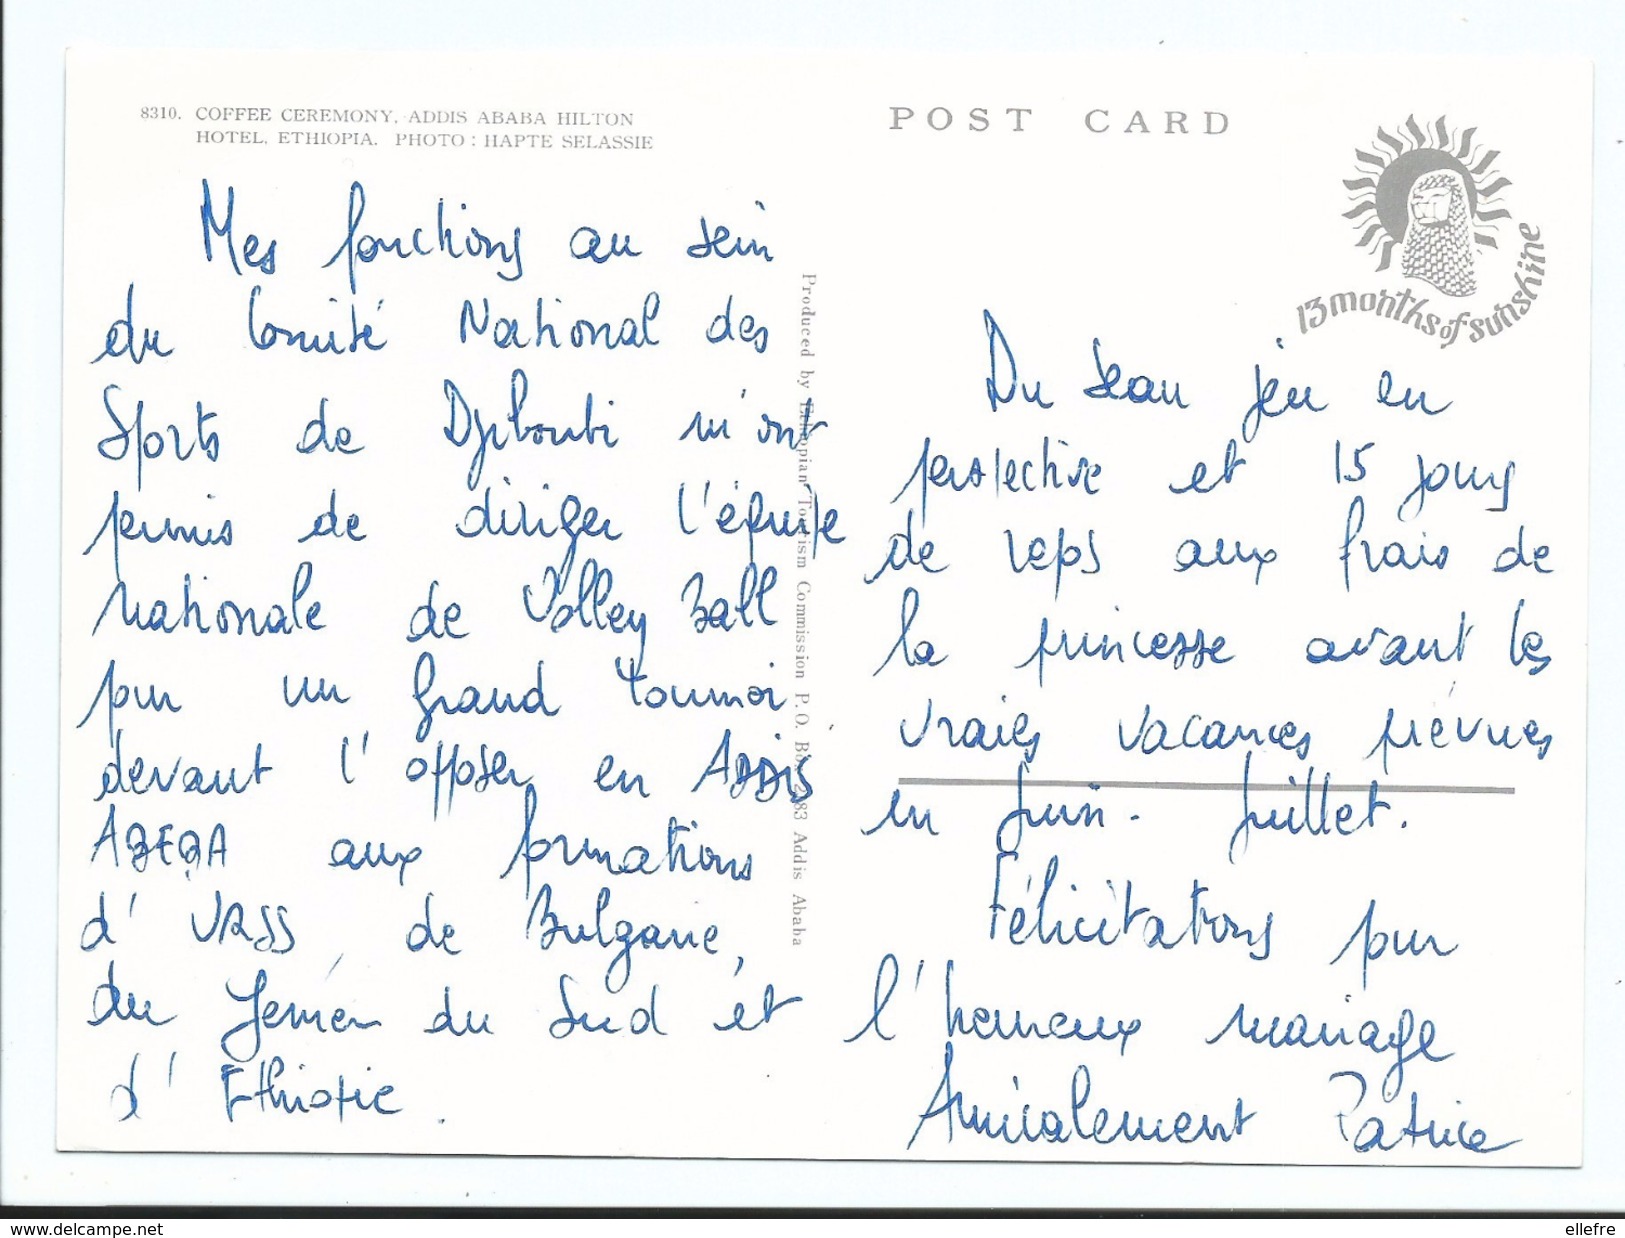 8310. COFFEE CEREMONY, ADDIS ABABA HILTON
HOTEL, ETHIOPIA. PHOTO : HAPTE SELASSIE
Mes fonctions au sein
du Comité National des
Sports de Djibouti m'ont
permis de diriger l'équipe
nationale de Volley Ball
pour un grand tournoi
devant l'opposer en ADDIS
ABEBA aux formations
d'URSS, de Bulgarie,
du Yemen du Sud et
d'Ethiopie.
Produced by Ethiopian Tourism Commission P.O. Box 2183 Addis Ababa
POST CARD
13 months of sunshine
Du beau jeu en
perspective et 15 jours
de reps aux frais de
la princesse avant les
vraies vacances prévues
en Juin - Juillet.
Félicitations pour
l'heureux mariage
Amicalement Patrice
www.delcampe.net
ellefre